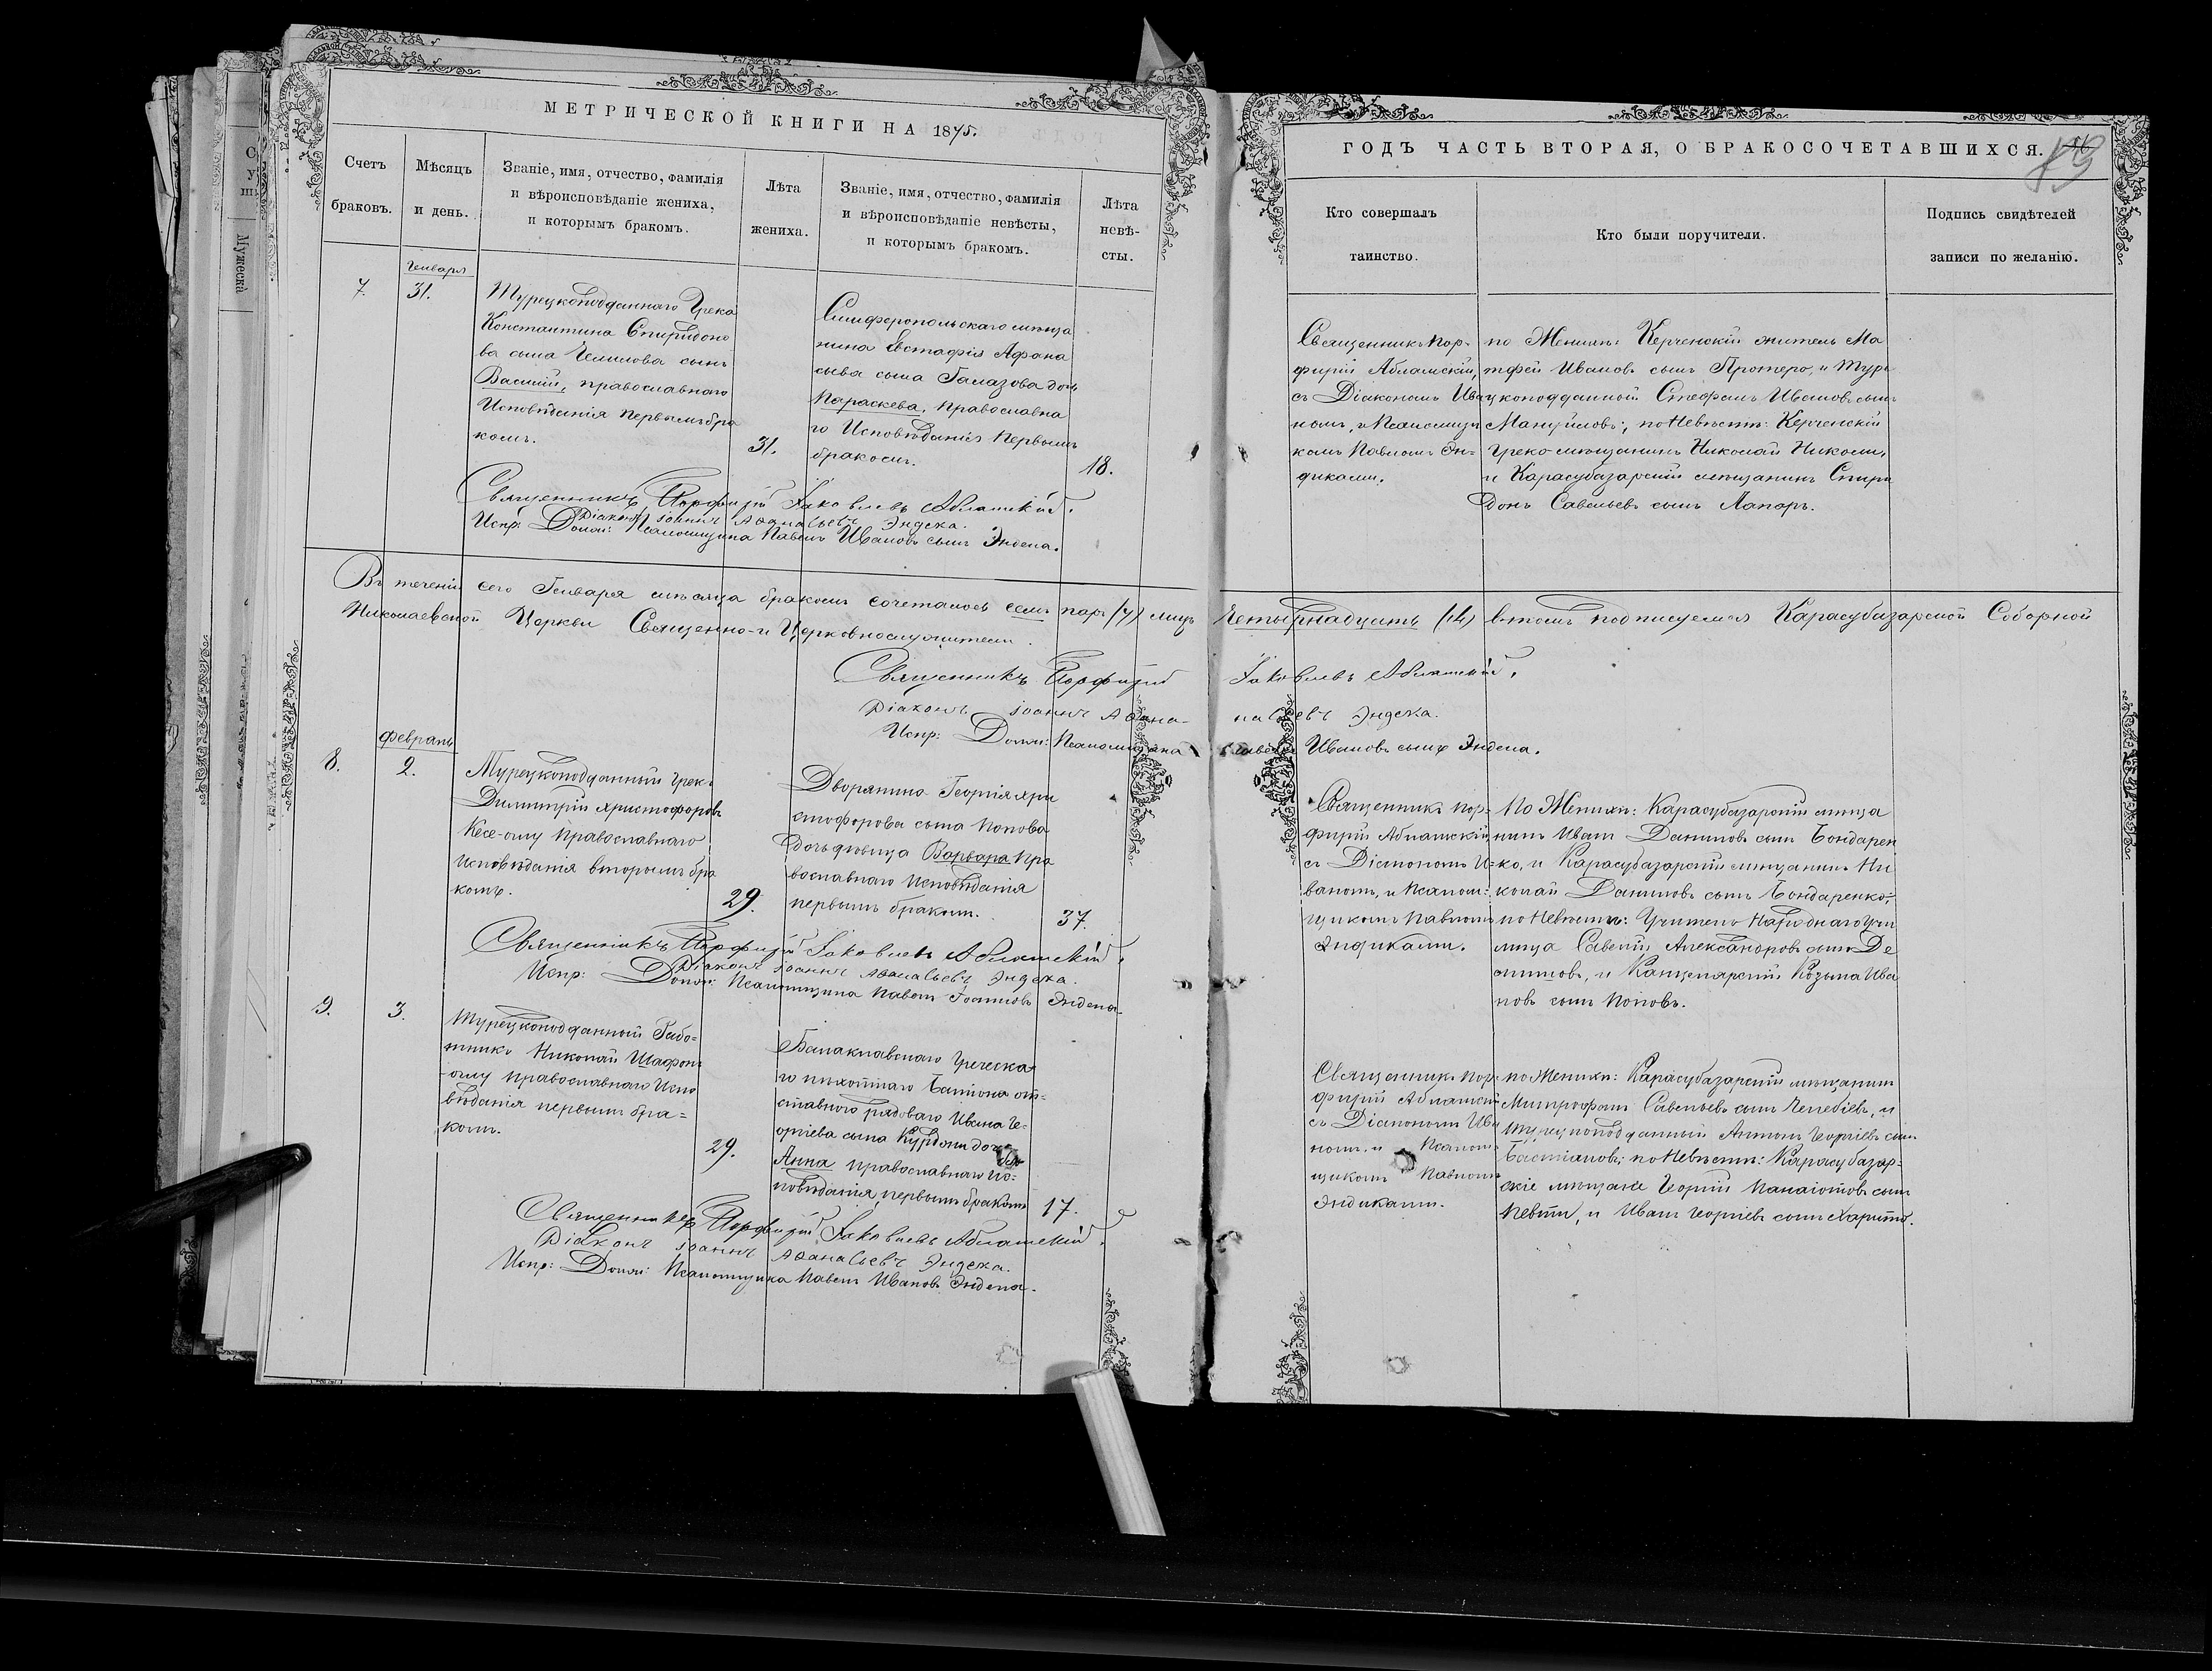 МЕТРИЧЕСКОЙ КНИГИ НА 1875.
Счетъ браковъ.
Мѣсяцъ и день.
Званіе, имя, отчество, фамилія
и вѣроисповѣданіе жениха,
и которымъ бракомъ.
Лѣта жениха.
Званіе, имя, отчество, фамилія
и вѣроисповѣданіе невѣсты,
и которымъ бракомъ.
Лѣта невѣ-
сты.
ГОДЪ ЧАСТЬ ВТОРАЯ, О БРАКОСОЧЕТАВШИХСЯ.
Кто совершалъ
таинство.
Кто были поручители.
Подпись свидѣтелей
записи по желанію.
7.
Генваря
31.
Турецкоподданнаго Грека
Константина Спиридоно
ва сына сынъ
Василій, православнаго
Исповѣданія первымъ бра
комъ.
31.
Симферопольскаго мѣща
нина Евстафія Афана
сьева сына Галазова дочь
Параскева, Православна
го Исповѣданія первымъ
бракомъ.
18.
Священникъ Пор-
фирій Абламскій,
съ Діакономъ Ива
номъ, и Псаломщи
комъ Павломъ Эн-
диками.
по Женихѣ: Керченскій житель Ма
тфей Ивановъ сынъ Протеро, и Тур
цкоподданной Стефанъ Ивановъ сынъ
Мануйловъ; по Невѣстѣ: Керченскій
Греко мѣщанинъ Николай Николи,
и Карасубазарскій мѣщанинъ Спири
донъ Савельевъ сынъ Лапоръ.
Священникъ Порфирій Іаковлевъ Абламскій.
Діаконъ Іоаннъ Аѳанасьевъ Эндека.
Испр: Долж: Псаломщика Павелъ Ивановъ сынъ Эндека.
Въ теченіи сего Генваря мѣсяца бракомъ сочеталось семь паръ (7) лицъ Четырнадцать (14) въ томъ подписуемся Карасубазарской Соборной
Николаевской Церкви Священно-и Церковнослужители.
Священникъ Порфирій Іаковлевъ Абламскій.
Діаконъ Іоаннъ Аѳана-сьевъ Эндека.
Испр: Долж: Псаломщика Павелъ Ивановъ сынъ Эндека.
8.
Февраль
2.
Турецкоподданный Грекъ
Димитрій Христофоровъ
Кесе-оглу Православнаго
Исповѣданія вторымъ бра
комъ.
29.
Дворянина Георгія Хри
стофорова сына Попова
Дочь дѣвица Варвара Пра
вославнаго Исповѣданія
первымъ бракомъ.
37.
Священникъ Пор-
фирій Абламскій,
съ Діакономъ И-
ваномъ, и Псалом-
щикомъ Павломъ
Эндиками.
По Женихѣ: Карасубазарскій мѣща
нинъ Иванъ Даниловъ сынъ Бондарен
ко, и Карасубазарскій мѣщанинъ Ни
колай Даниловъ сынъ Бондаренко;
по Невѣстѣ: Учитель Народнаго Учи
лища Савелій Александровъ сынъ Де
, и Канцелярскій Козьма Ива
новъ сынъ Поповъ.
Священникъ Порфирій Іаковлевъ Абламскій.
Діаконъ Іоаннъ Аѳанасьевъ Эндека.
Испр: Долж: Псаломщика Павелъ Іоанновъ Эндека.
9.
3.
Турецкоподданный Рабо-
тникъ Николай Шафонъ
-оглу Православнаго Испо
вѣданія первымъ бра-
комъ.
29.
Балаклавскаго Греческа
го пѣхотнаго Баталіона от-
ставнаго рядоваго Ивана Ге-
оргіева сына дочь
Анна православнаго Ис-
повѣданія первымъ бракомъ
17.
Священникъ Пор-
фирій Абламскій
съ Діакономъ Ива
номъ, и Псалом
щикомъ Павломъ
Эндиками.
по Женихѣ: Карасубазарскій мѣщанинъ
Митрофанъ Савельевъ сынъ Челебіевъ, и
Турецкоподданный Антонъ Георгіевъ сынъ
Бастіановъ; по Невѣстѣ: Карасубазар-
скіе мѣщане Георгій Панаіотовъ сынъ
Певти, и Иванъ Георгіевъ сынъ Харито.
Священникъ Порфирій Іаковлевъ Абламскій.
Діаконъ Іоаннъ Аѳанасьевъ Эндека.
Испр: Долж: Псаломщика Павелъ Ивановъ Эндека.
Мужеска